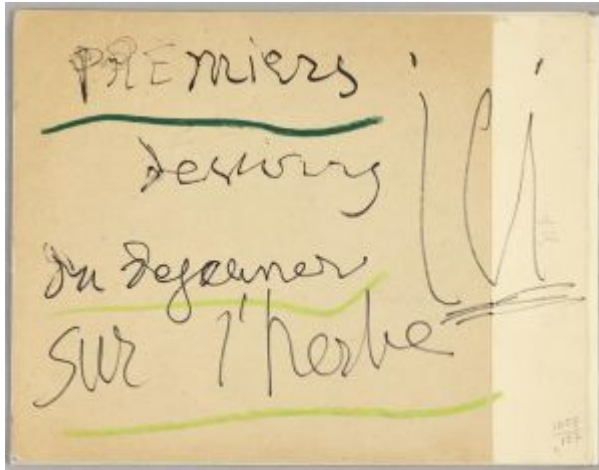 PREmiers
dessins
du dejeuner
sur l'herbe
ici